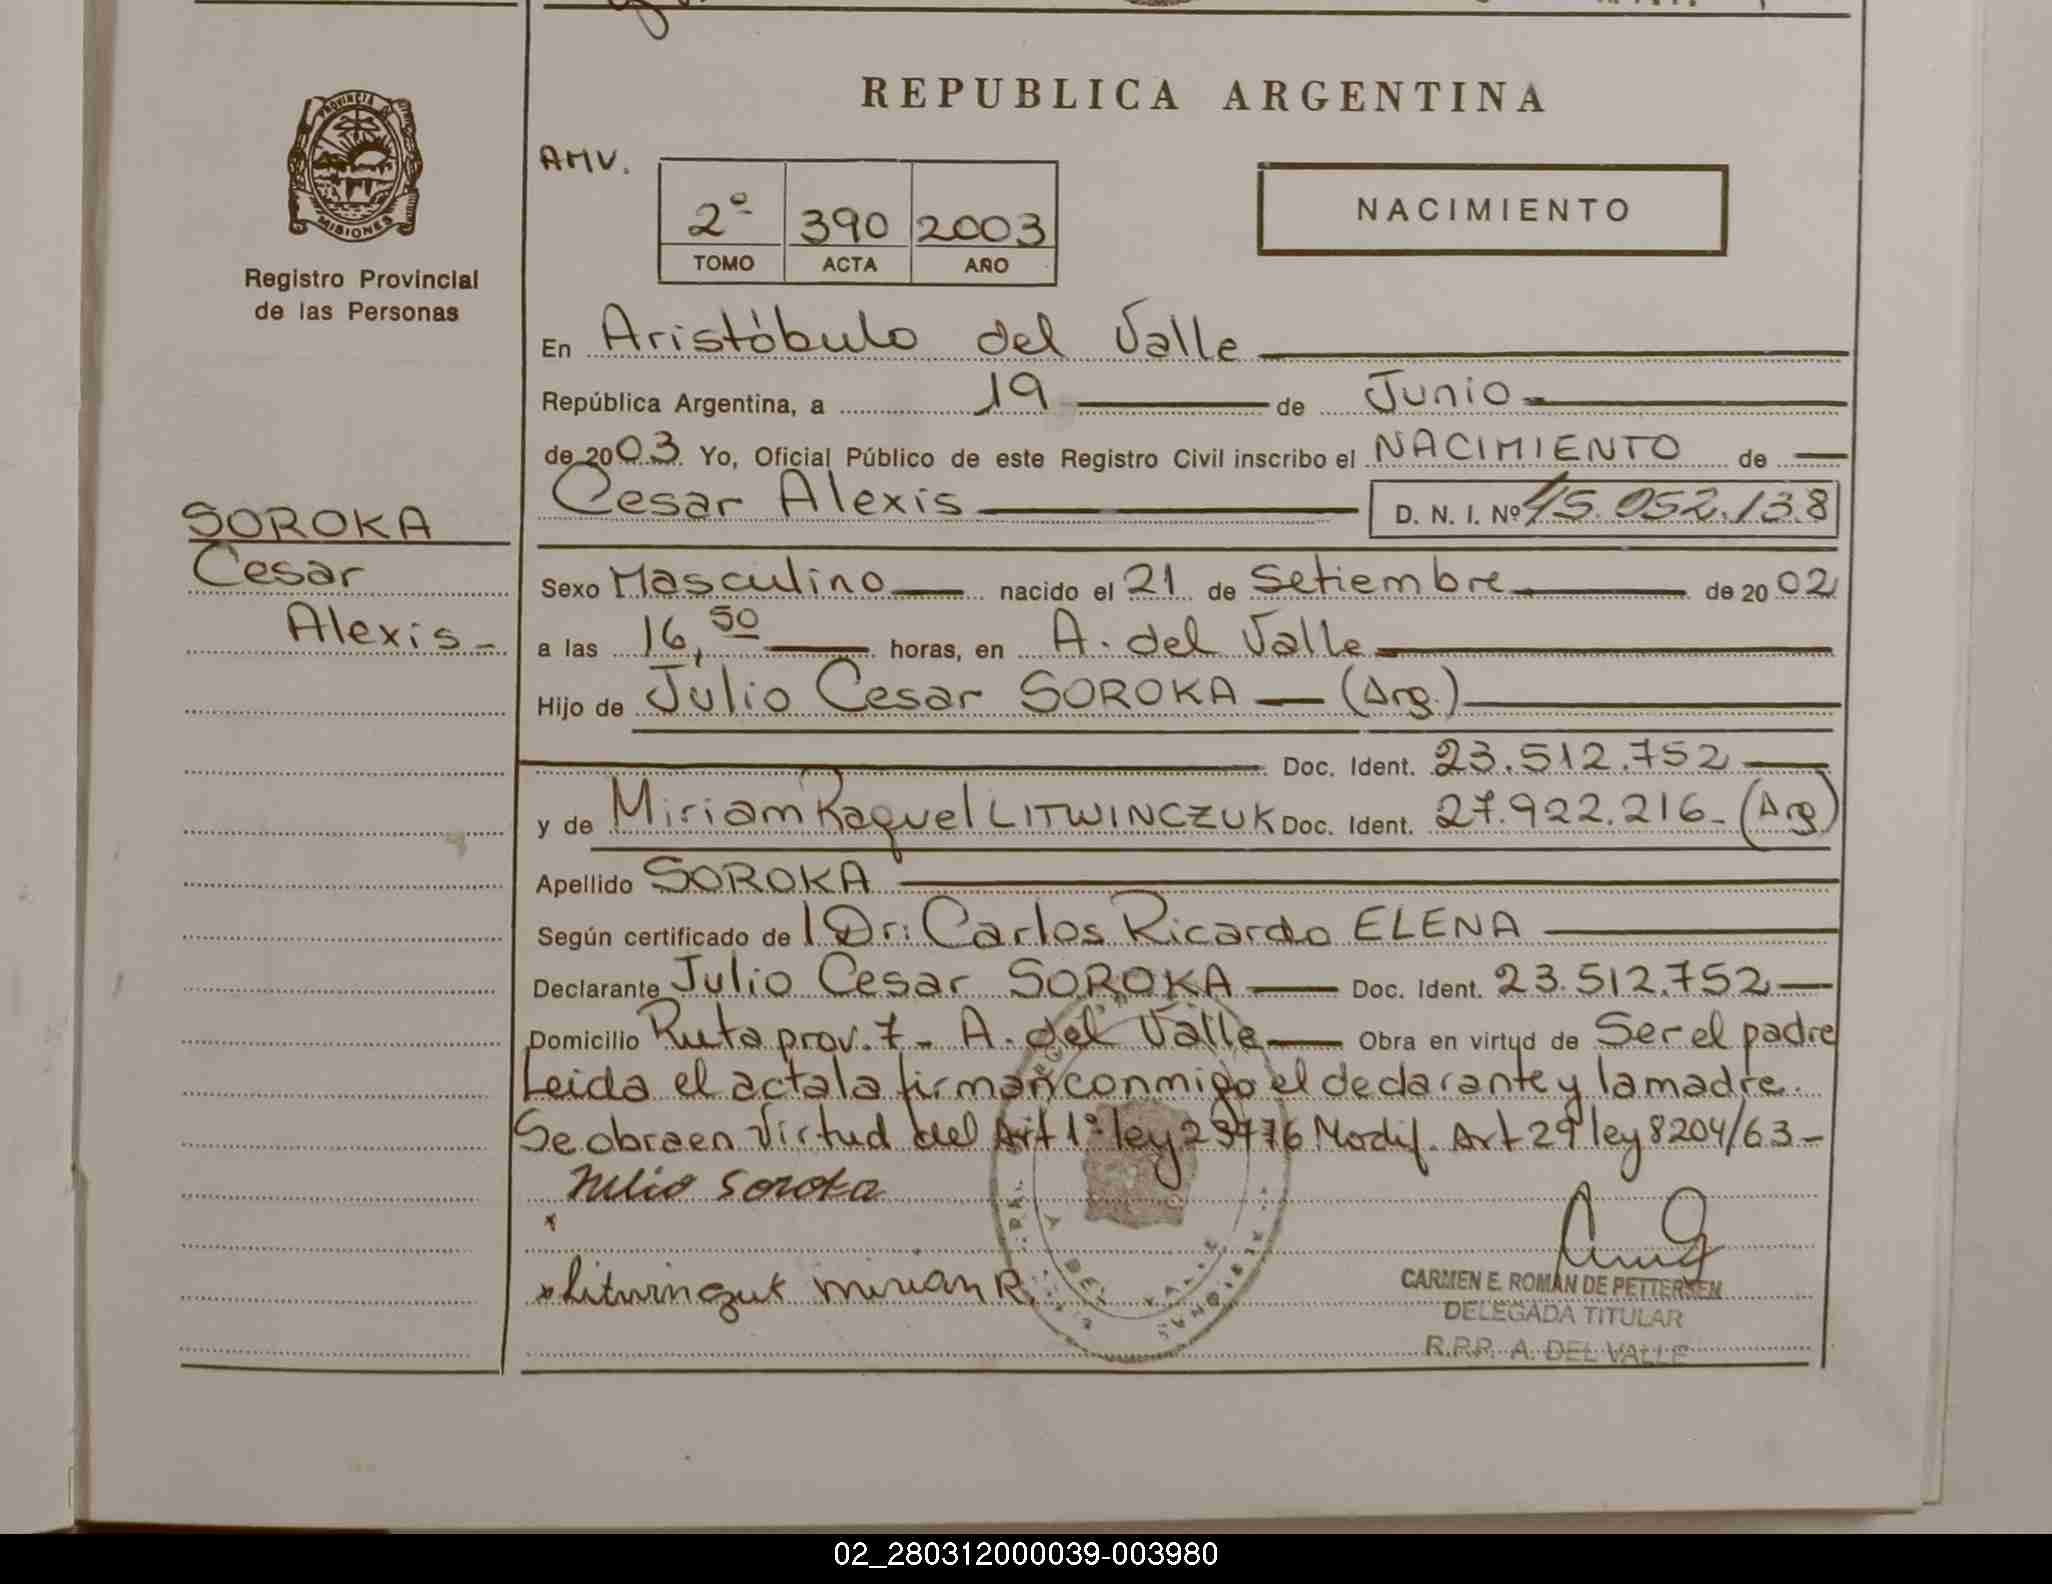 PROVINCIA DE
MISIONES
Registro Provincial
de las Personas
SOROKA
Cesar
Alexis-
REPUBLICA ARGENTINA
AMV.
2º 390 2003
TOMO ACTA AÑO
NACIMIENTO
En Aristóbulo del Valle
República Argentina, a 19 de Junio
de 2003 Yo, Oficial Público de este Registro Civil inscribo el NACIMIENTO de
Cesar Alexis D. N. I. Nº 45.052.138
Sexo Masculino nacido el 21 de Setiembre de 2002
a las 16,50 horas, en A. del Valle
Hijo de Julio Cesar SOROKA — (Arg.)
Doc. Ident. 23.512.752
y de Miriam Raquel LITWINCZUK Doc. Ident. 27.922.216- (Arg)
Apellido SOROKA
Según certificado de l Dr: Carlos Ricardo ELENA
Declarante Julio Cesar SOROKA Doc. Ident. 23.512.752
Domicilio Ruta prov. 7- A. del Valle Obra en virtud de Ser el padre
Leida el acta la firman conmigo el declarante y la madre.
Se obra en Virtud del Art 1º ley 23476 Modif. Art 29 ley 8204/63-
Julio Soroka
x
x Litwinczuk Mirian R.
CARMEN E. ROMAN DE PETTERSEN
DELEGADA TITULAR
R.P.P. A. DEL VALLE
A. DEL VALLE
MISIONES
02_280312000039-003980